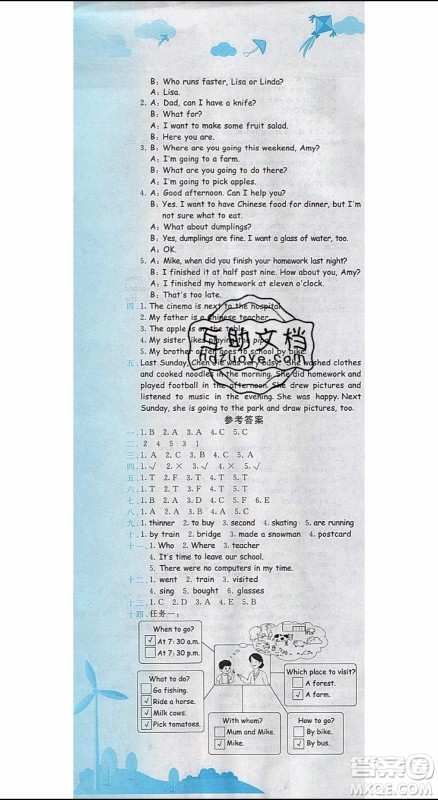 B: Who runs faster, Lisa or Linda?
A: Lisa.
2. A: Dad, can I have a knife?
B: What for?
A: I want to make some fruit salad.
B: Here you are.
3. B: Where are you going this weekend, Amy?
A: I'm going to a farm.
B: What are you going to do there?
A: I'm going to pick apples.
4. A: Good afternoon. Can I help you?
B: Yes. I want to have Chinese food for dinner, but I'm
not sure what to eat.
A: What about dumplings?
B: Yes, dumplings are fine. I want a glass of water, too.
A: OK.
5. A: Mike, when did you finish your homework last night?
B: I finished it at half past nine. How about you, Amy?
A: I finished my homework at eleven o'clock.
B: That's too late.
四、1. The cinema is next to the hospital.
2. My father is a Chinese teacher.
3. The apple is on the table.
4. My sister likes playing the pipa.
5. My brother often goes to school by bike.
五、Last Sunday, Chen Jie was very busy. She washed clothes
and cooked noodles in the morning. She did homework and
played football in the afternoon. She drew pictures and
listened to music in the evening. She was happy. Next
Sunday, she is going to the park and draw pictures, too.
互助文档
huzuwo.com
参考答案
一、1. B 2. B 3. A 4. C 5. C
二、2 4 5 3 1
三、1. A 2. C 3. C 4. B 5. B
四、1. √ 2. × 3. √ 4. × 5. √
五、1. T 2. F 3. F 4. T 5. T
六、1. T 2. T 3. F 4. F 5. F
七、1. B 2. A 3. D 4. C 5. F 6. E
八、1. A 2. C 3. A 4. B 5. A
九、1. thinner 2. to buy 3. second 4. skating 5. are running
十、1. by train 2. bridge 3. made a snowman 4. postcard
十一、1. Who 2. Where 3. teacher
4. It's time to leave our school.
5. There were no computers in my time.
十二、1. went 2. train 3. visited
4. sing 5. bought 6. glasses
十三、1. C 2. D 3. A 4. E 5. B
十四、任务一:
When to go?
√ At 7:30 a.m.
At 7:30 p.m.
Which place to visit?
A forest.
√ A farm.
What to do?
Go fishing.
√ Ride a horse.
√ Milk cows.
√ Pick tomatoes.
With whom?
Mum and Mike.
√ Mike.
How to go?
By bike.
√ By bus.
答案圈
MXQE.COM